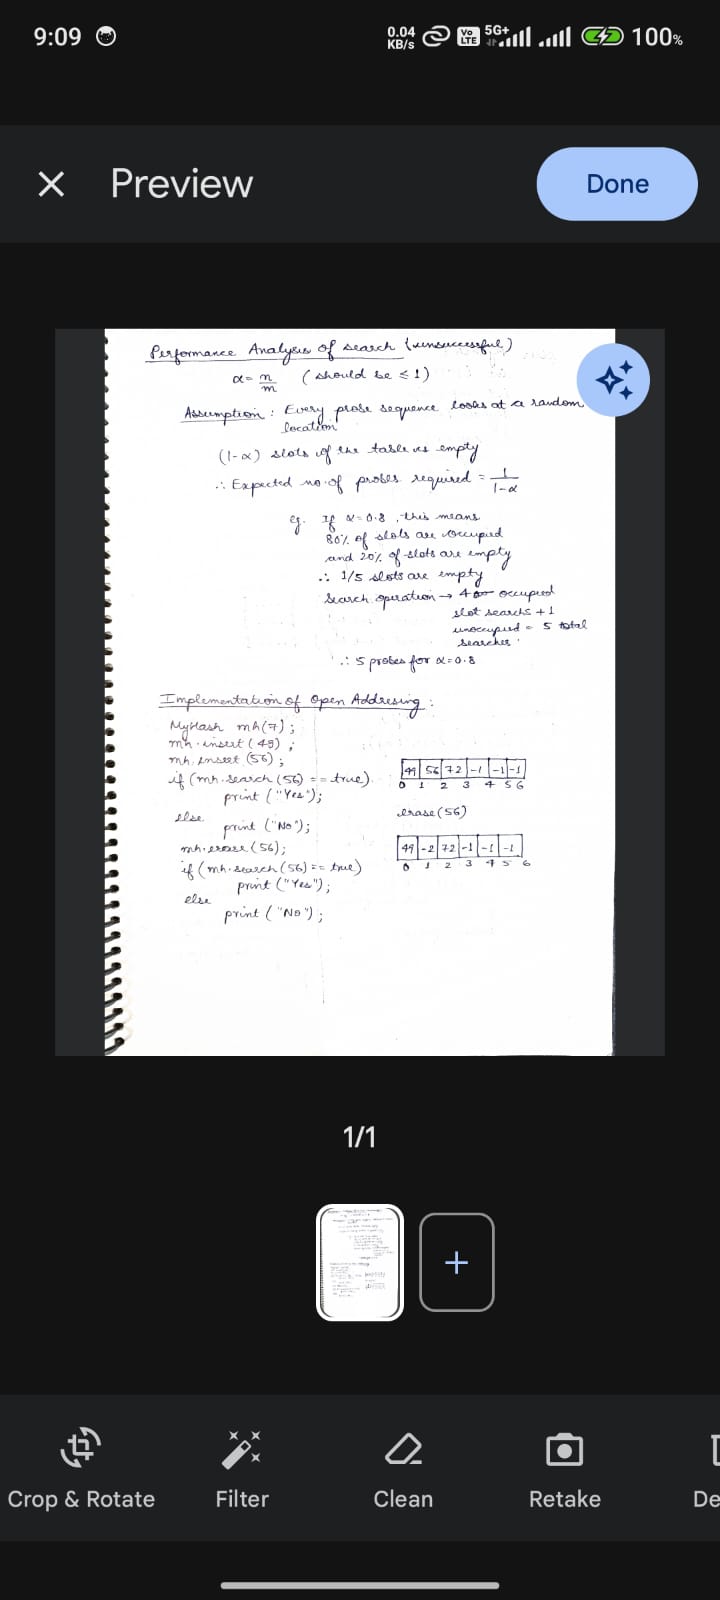 9:09
0.04 KB/s
Vo LTE
5G+
100%
Preview
Done
Performance Analysis of search (unsuccessful)
α = n/m (should be ≤ 1)
Assumption : Every probe sequence looks at a random
location
(1-α) slots of the table is empty
∴ Expected no. of probes required = 1/1-α
eg. If α=0.8, this means
80% of slots are occupied
and 20% of slots are empty
∴ 1/5 slots are empty
Search operation → 4 occupied
slot searchs + 1
unoccupied = 5 total
searches.
∴ 5 probes for α=0.8
Implementation of Open Addressing :
MyHash mh(7);
mh.insert(49);
mh.insert(56);
if (mh.search(56) == true)
print ("Yes");
else
print ("No");
mh.erase(56);
if (mh.search(56) == true)
print ("Yes");
else
print ("No");
49 56 72 -1 -1 -1
0 1 2 3 4 5 6
erase(56)
49 -2 72 -1 -1 -1
0 1 2 3 4 5 6
1/1
+
Crop & Rotate
Filter
Clean
Retake
De